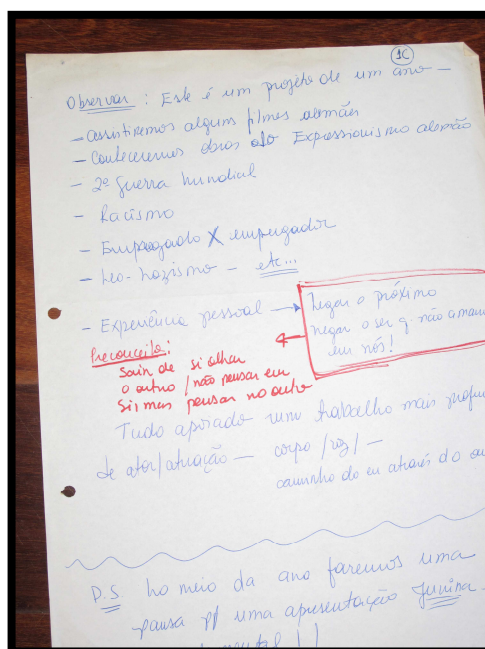 1C
Observar : Este é um projeto de um ano —
- assistiremos alguns filmes alemães
- conheceremos obras do Expressionismo alemão
- 2ª Guerra Mundial
- Racismo
- Empregado X empregador
- Neo-Nazismo - etc...
- Experiência pessoal →
negar o próximo
negar o ser q não amamos
em nós!
Preconceito:
Sair de si olhar
o outro / não pensar em
si mas pensar no outro
Tudo apoiado num trabalho mais
de ator/atuação — corpo / voz / —
caminho do eu através do
P.S. No meio da ano faremos uma
pausa p/ uma apresentação Junina -